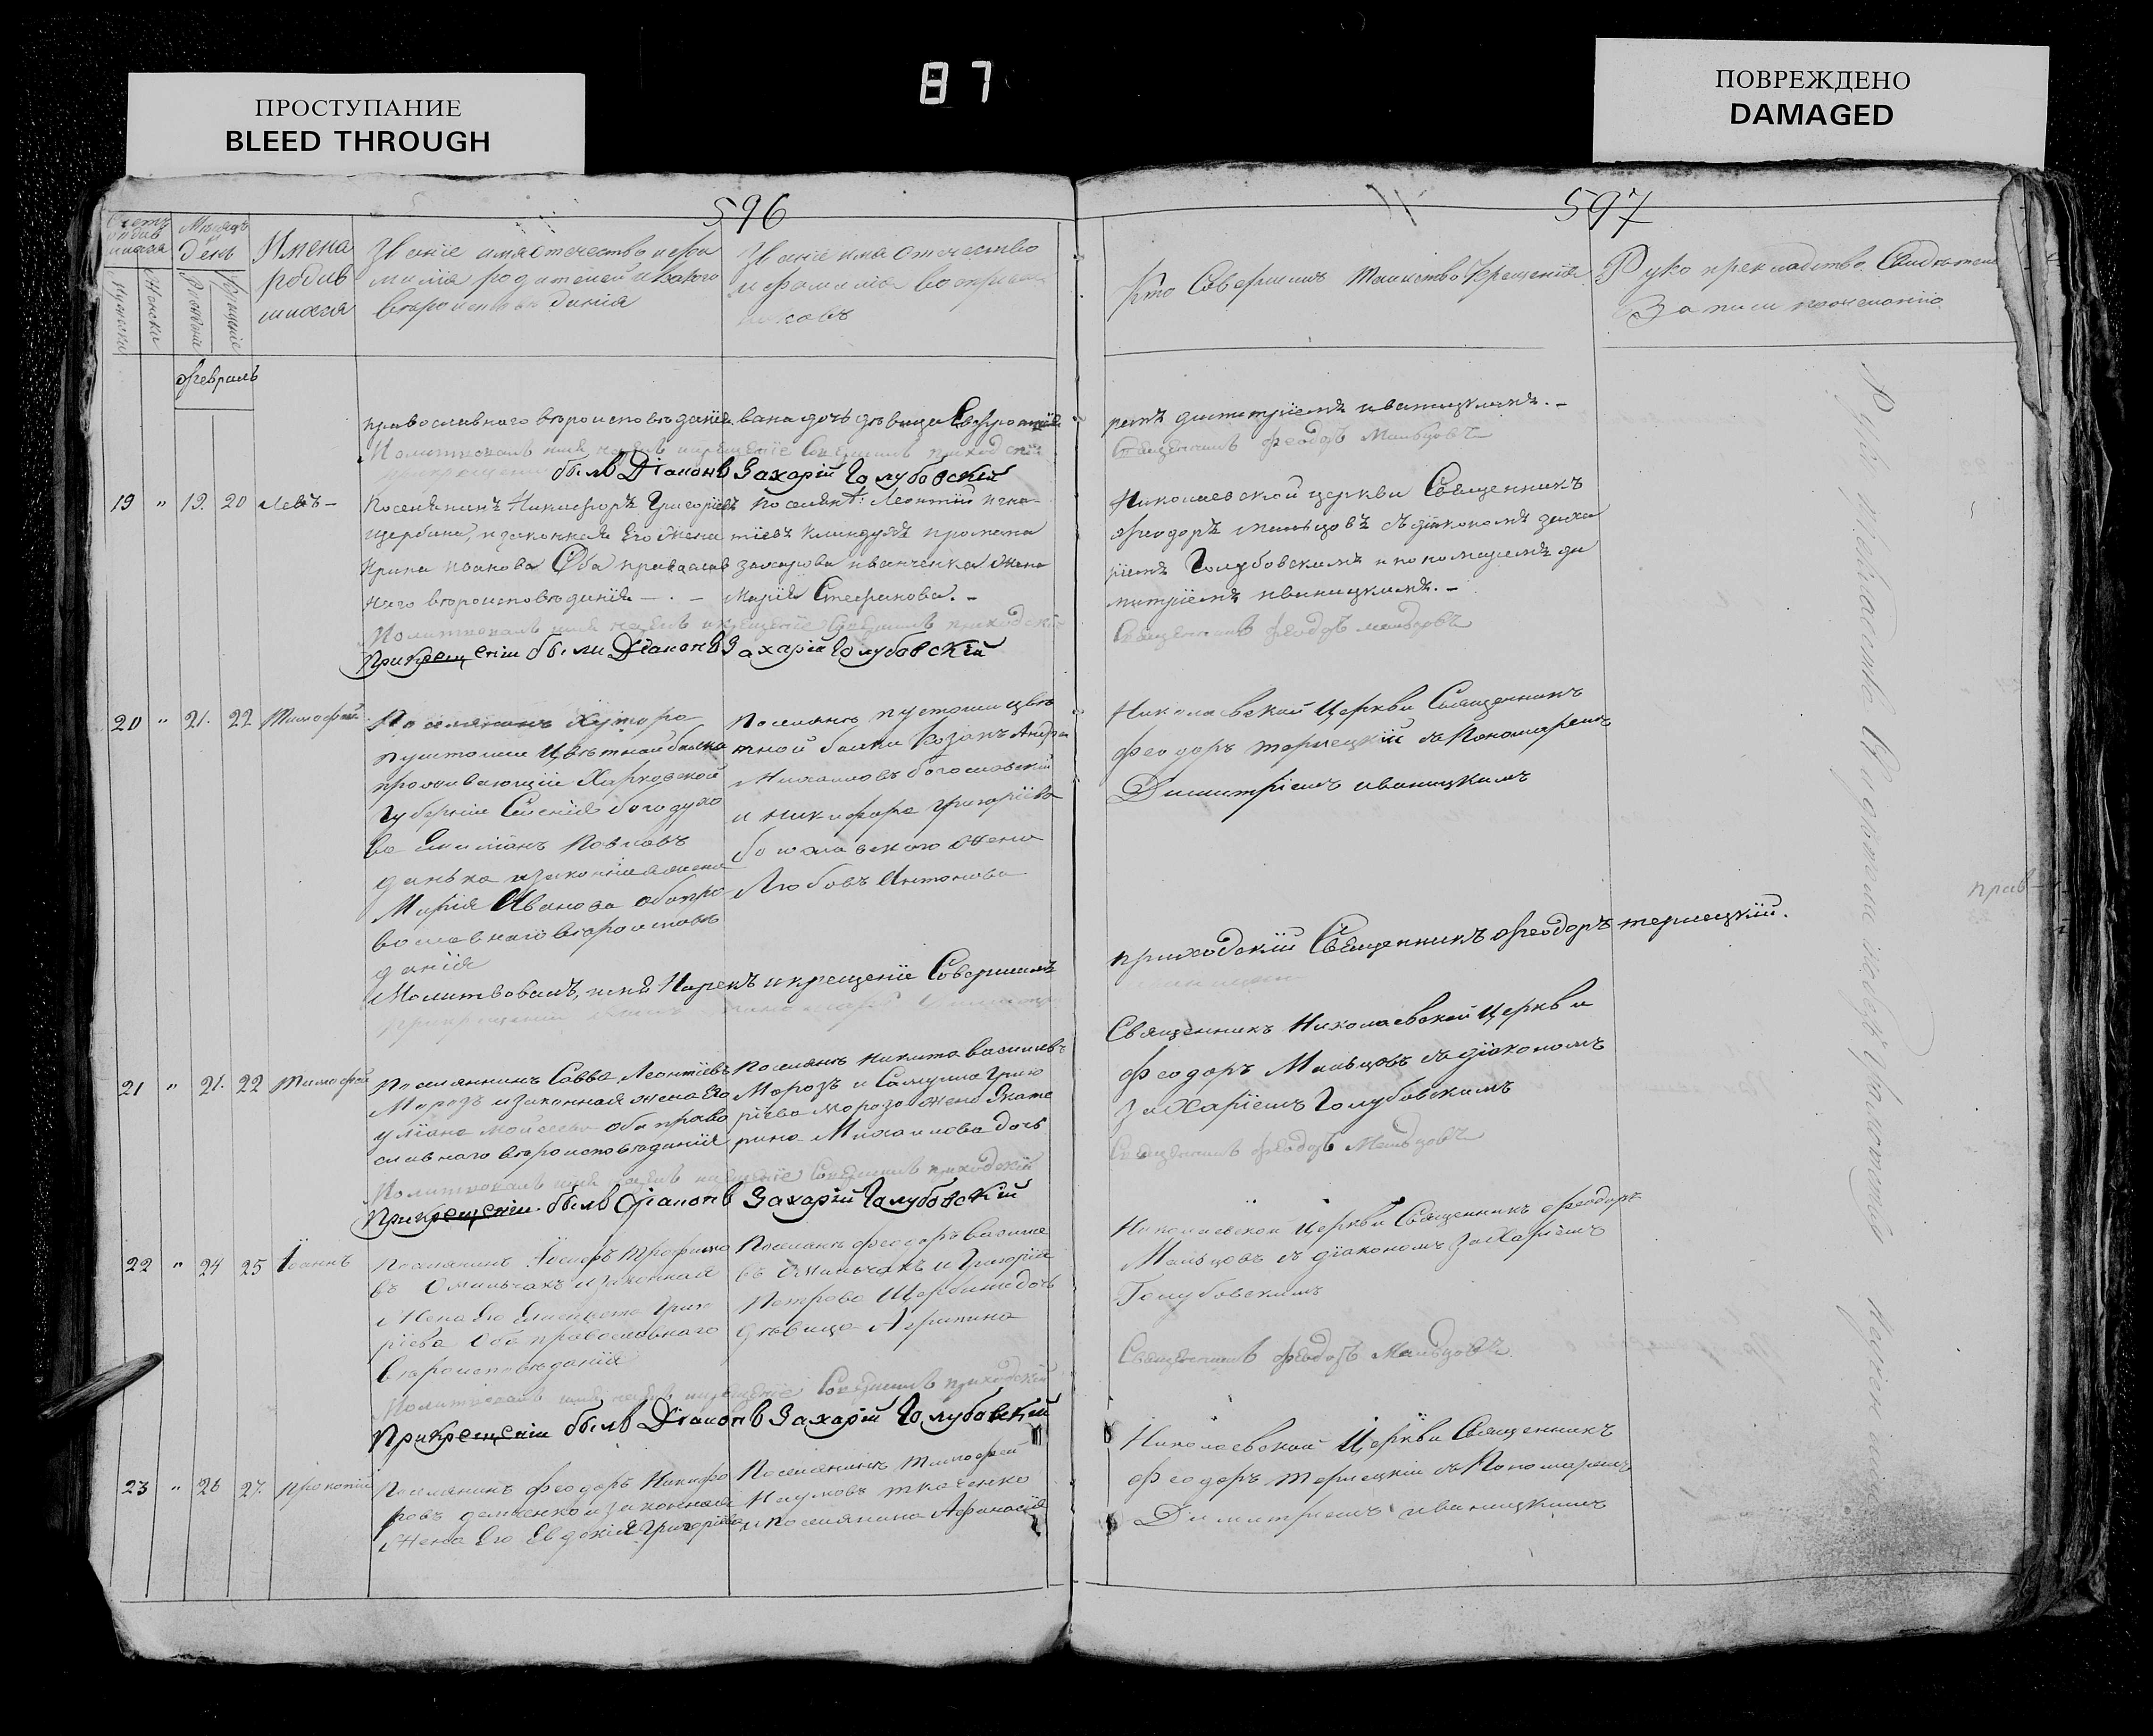 ПРОСТУПАНИЕ
BLEED THROUGH
87
ПОВРЕЖДЕНО
DAMAGED
596
Мѣсяцъ
День
Имена
родив
шихся
Званіе имя отечество и фа
милія родителей и какого
вѣроисповѣданія
Званіе имя отечество
и фамилія воспріем
никовъ
февраль
православнаго вѣроисповѣданія
вана дочь дѣвица Евфросинія
Молитвовалъ имя нарекъ и крещеніе совершилъ приходскій
былъ Діаконъ Захарій Голубовскій
19 " 19. 20 Левъ –
Поселянинъ Никифоръ Григоріевъ
щербина, и законная Его жена
Ирина Иванова Оба православ
наго вѣроисповѣданія – . –
Леонтій
захарова иванченка жена
Марія Стефанова. –
Молитвовалъ имя нарекъ и крещеніе совершилъ приходскій
При крещеніи были Діаконъ Захарій Голубовскій
20 " 21. 22 Тимофей
Поселянинъ Хутора
пустоши Цвѣтной балки
проживающій Харковской
Губерніи
Емиліанъ Павловъ
и законная жена
Марія Иванова оба пра
вославнаго вѣроисповѣ
данія
Поселянъ пустоши цвѣ
тной балки Козакъ Андре
Михаиловъ богославскій
и Никифора Григоріева
богославскаго жена
Любовь Антонова
Молитвовалъ, имя Нарекъ и крещеніе Совершилъ
21 " 21. 22 Тимофей
Поселянинъ Савва Леонтіевъ
Морозъ и законная жена Его
уліана Мойсеева оба право
славнаго вѣроисповѣданія
Поселянъ Никита Васильевъ
Морозъ и Самуила Григо
ріева Мороза жена Екате
рина Михаилова дочь
Молитвовалъ имя нарекъ и крещеніе совершилъ приходскій
При крещеніи былъ Діаконъ Захарій Голубовскій
22 " 24 25 Іоаннъ
Поселянинъ Трофимо
въ Омельчакъ и законная
Жена Его Елисавета Григо
ріева Оба православнаго
вѣроисповѣданія
Поселянъ Феодоръ Василіе
въ Омельчакъ и Григорія
Петрова Щербины дочь
дѣвица Агрипина
Молитвовалъ имя нарекъ и крещеніе Совершилъ приходскій
При крещеніи былъ Діаконъ Захарій Голубовскій
23 " 26 27. Прокопій
Поселянинъ Феодоръ Никифо
ровъ демченко и законная
Жена Его Евдокія Григоріева
Поселянинъ Тимофей
Наумовъ ткаченко
и поселянина Афанасія
597
Кто Совершилъ таинство Крещенія
Рукоприкладство Свидѣтелей
Записи по желанію
ремъ димитріемъ иваницкимъ. –
Священникъ Феодоръ Мальцовъ
Николаевской церкви Священникъ
Феодоръ мальцовъ съ діакономъ заха
ріемъ Голубовскимъ и пономаремъ ди
митріемъ иваницкимъ. –
Священникъ Феодоръ мальцовъ
Николаевской Церкви Священникъ
Феодоръ терлецкій съ Пономаремъ
Димитріемъ иваницкимъ
приходскій Священникъ Феодоръ терлецкій.
Священникъ Николаевской Церкви
Феодоръ Мальцовъ съ діакономъ
Захаріемъ Голубовскимъ
Священникъ Феодоръ Мальцовъ
Николаевской Церкви Священникъ Феодоръ
Мальцовъ съ діакономъ Захаріемъ
Голубовскимъ
Священникъ Феодоръ Мальцовъ
Николаевской Церкви Священникъ
Феодоръ терлецкій съ Пономаремъ
Димитріемъ иваницкимъ